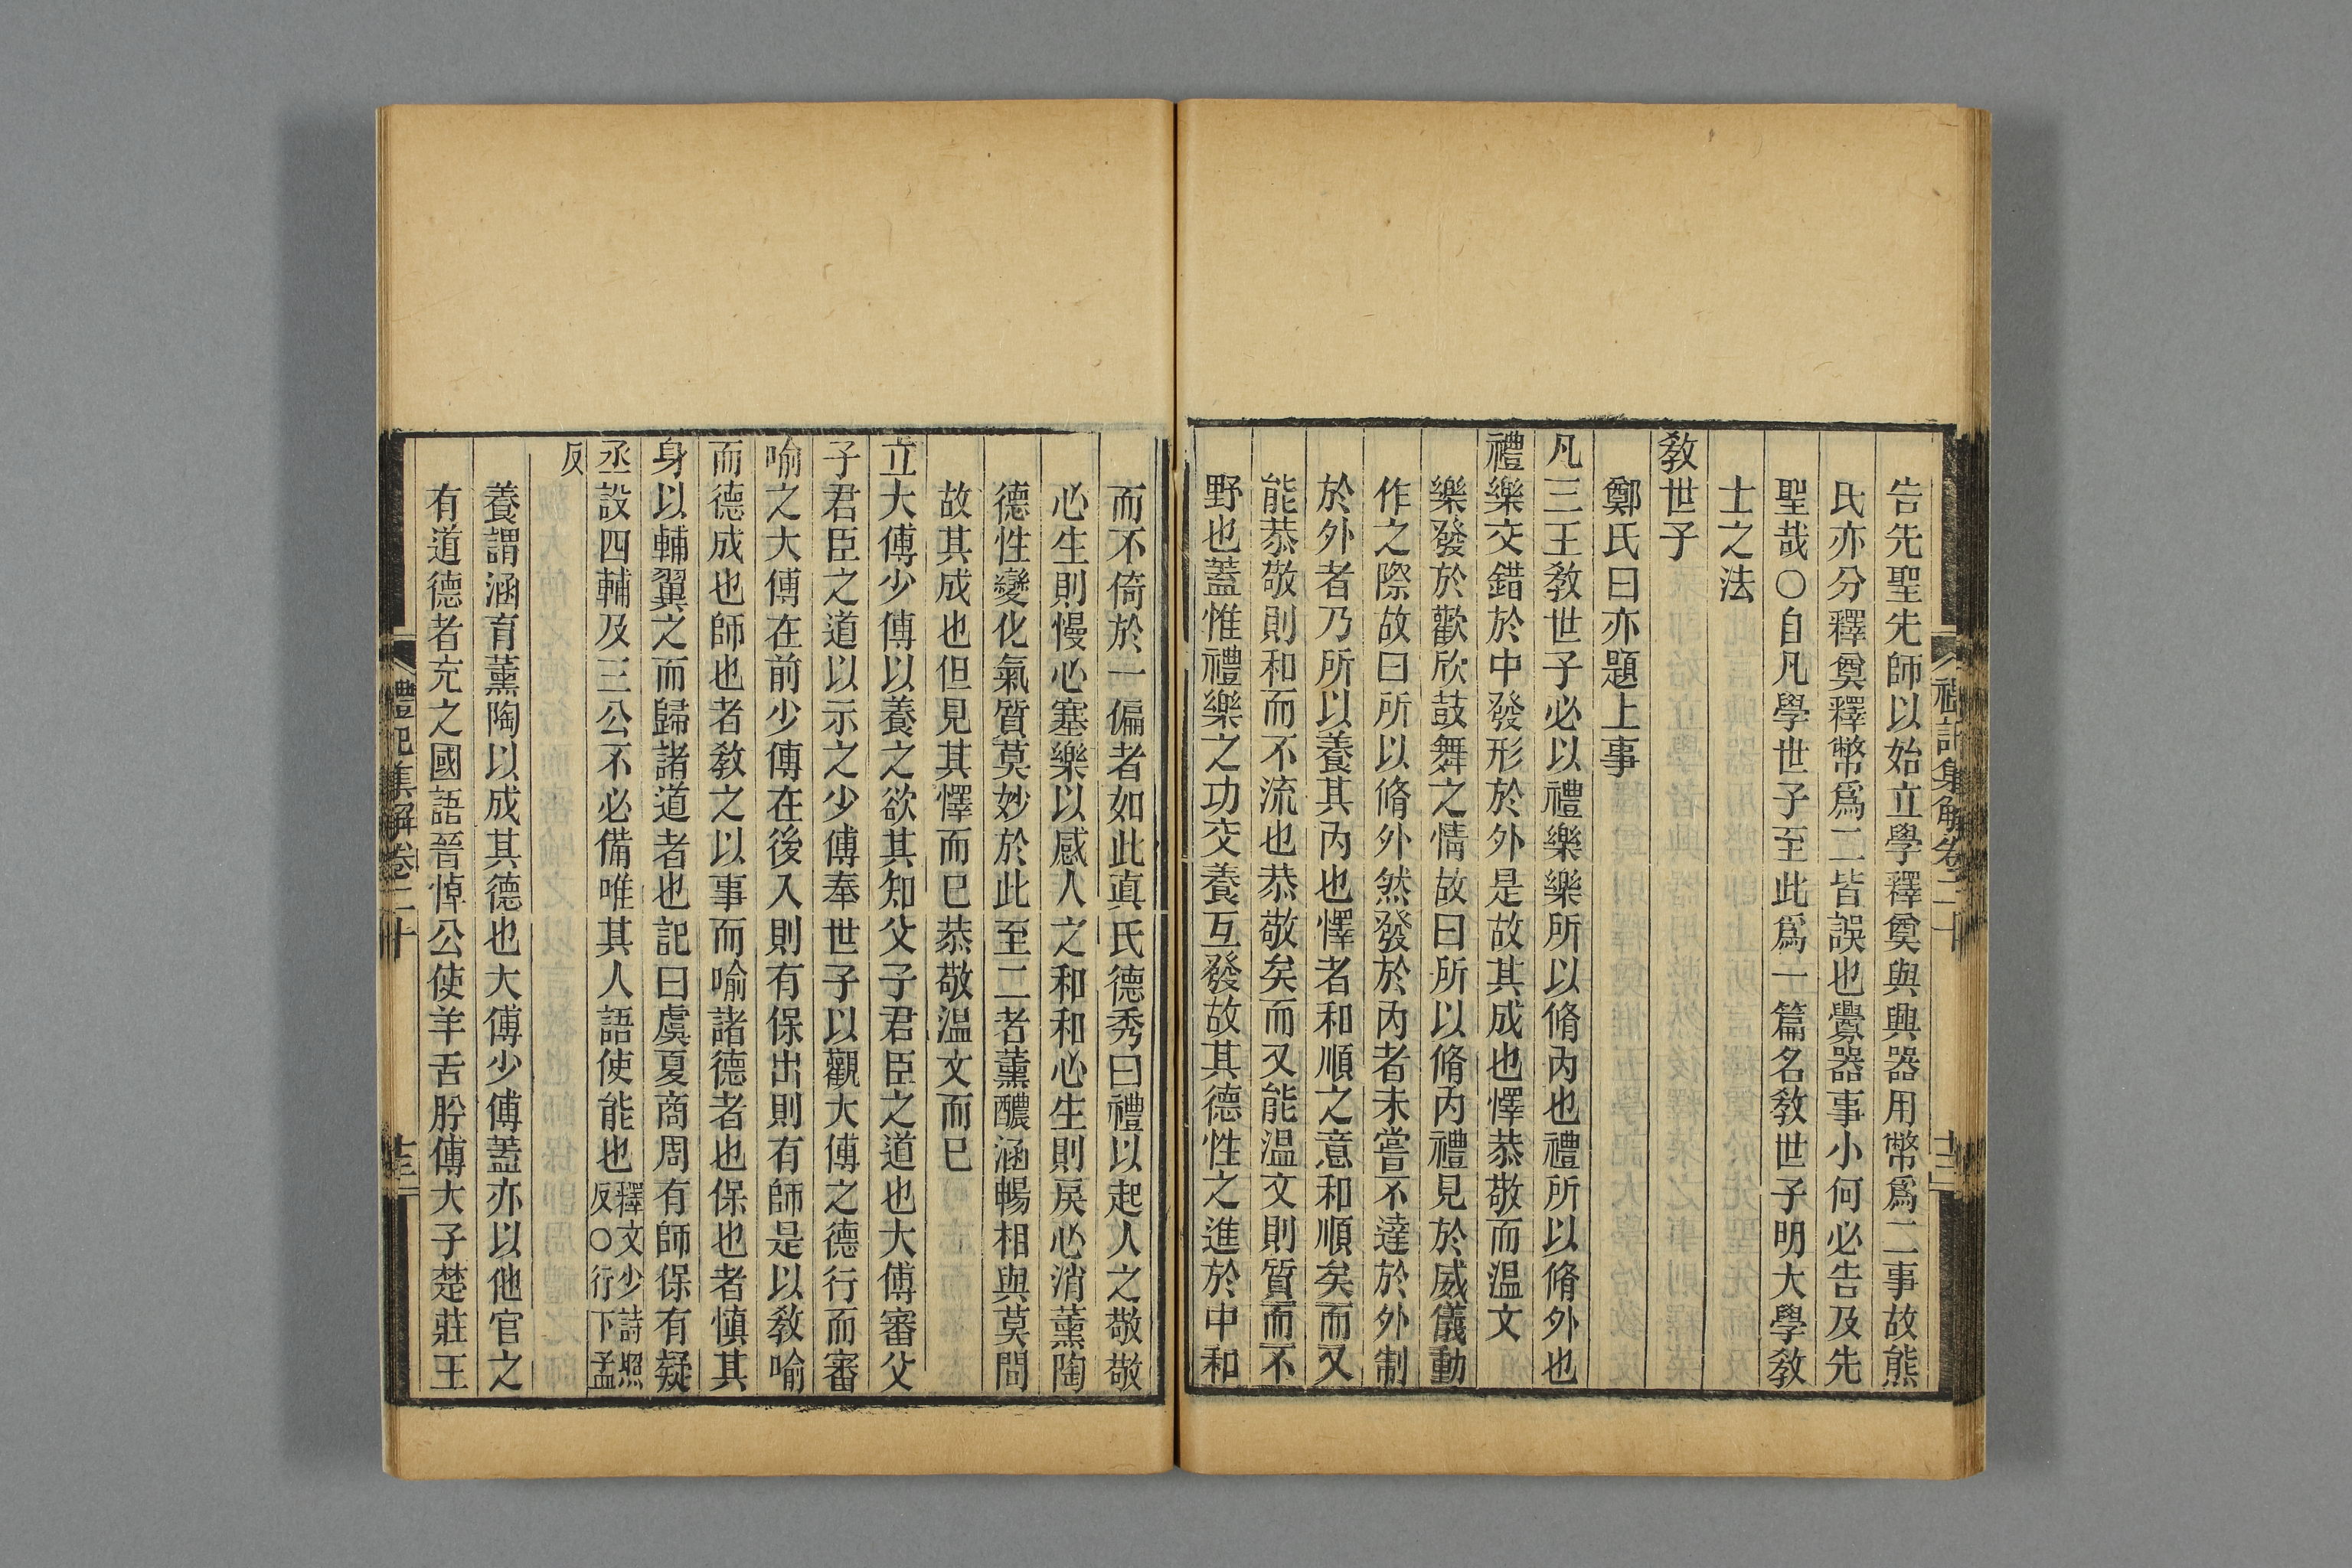 告先聖先師以始立學釋奠與興器用幣爲二事故熊
氏亦分釋奠釋幣爲二皆誤也釁器事小何必告及先
聖哉○自凡學世子至此爲一篇名敎世子明大學敎
士之法
敎世子
鄭氏曰亦題上事
凡三王敎世子必以禮樂樂所以脩內也禮所以脩外也
禮樂交錯於中發形於外是故其成也懌恭敬而溫文
樂發於歡欣鼓舞之情故曰所以脩內禮見於威儀動
作之際故曰所以脩外然發於內者未嘗不達於外制
於外者乃所以養其內也懌者和順之意和順矣而又
能恭敬則和而不流也恭敬矣而又能溫文則質而不
野也蓋惟禮樂之功交養互發故其德性之進於中和
而不倚於一偏者如此真氏德秀曰禮以起人之敬敬
心生則慢心塞樂以感人之和和心生則戾心消薰陶
德性變化氣質莫妙於此至二者薰醲涵暢相與莫間
故其成也但見其懌而巳恭敬溫文而巳
立大傅少傅以養之欲其知父子君臣之道也大傅審父
子君臣之道以示之少傅奉世子以觀大傅之德行而審
喻之大傅在前少傅在後入則有保出則有師是以敎喻
而德成也師也者敎之以事而喻諸德者也保也者愼其
身以輔翼之而歸諸道者也記曰虞夏商周有師保有疑
丞設四輔及三公不必備唯其人語使能也釋文少詩照反○行下孟
反
養謂涵育薰陶以成其德也大傅少傅蓋亦以他官之
有道德者充之國語晉悼公使羊舌肸傅大子楚莊王
禮記集解卷二十
十三